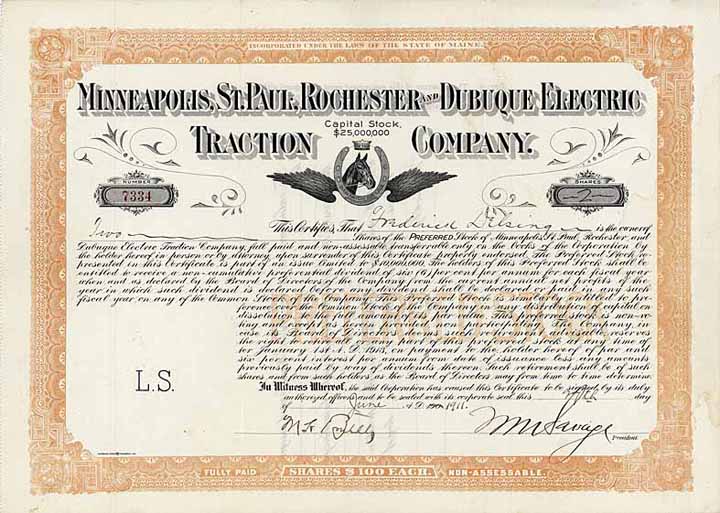 INCORPORATED UNDER THE LAWS OF THE STATE OF MAINE.
MINNEAPOLIS, ST. PAUL, ROCHESTER AND DUBUQUE ELECTRIC
Capital Stock,
$25,000,000
TRACTION COMPANY.
NUMBER
7334
SHARES
2
This Certifies, That Frederick is the owner of
Two Shares of the PREFERRED Stock of Minneapolis, St. Paul, Rochester and
Dubuque Electric Traction Company, full paid and non-assessable transferrable only on the books of the Corporation by
the holder hereof in person or by attorney upon surrender of this Certificate properly endorsed. The Preferred Stock re-
presented by this Certificate is part of an issue limited to $10,000,000. The holders of this Preferred Stock shall be
entitled to receive a non-cumulative preferential dividend of six (6) per cent per annum for each fiscal year
when and as declared by the Board of Directors of the Company from the current annual net profits of the
year in which such dividend is declared before any dividend shall be declared or paid in any such
fiscal year on any of the Common Stock of the Company. This Preferred Stock is similarly entitled to pre-
ference over the Common Stock in the payment thereof out of any distribution of capital on
dissolution to the full amount of its par value. This preferred stock is non-vo-
ting and except as herein provided non participating. The Company, in
case its Board of Directors deem such retirement advisable, reserves
the right to retire all or any part of this preferred stock at any time af-
ter January 1st A.D. 1913, on payment to the holder hereof of par and
six per cent interest per annum from date of issuance less any amounts
previously paid by way of dividends thereon. Such retirement shall be of such
shares and from such holders, as the Board of Directors may from time to time determine.
L.S.
In Witness Whereof, the said Corporation has caused this Certificate to be signed by its duly
authorized officers and to be sealed with its corporate seal this day
of June A.D. 1911.
M W Savage
President
FULLY PAID
SHARES $100 EACH.
NON-ASSESSABLE.